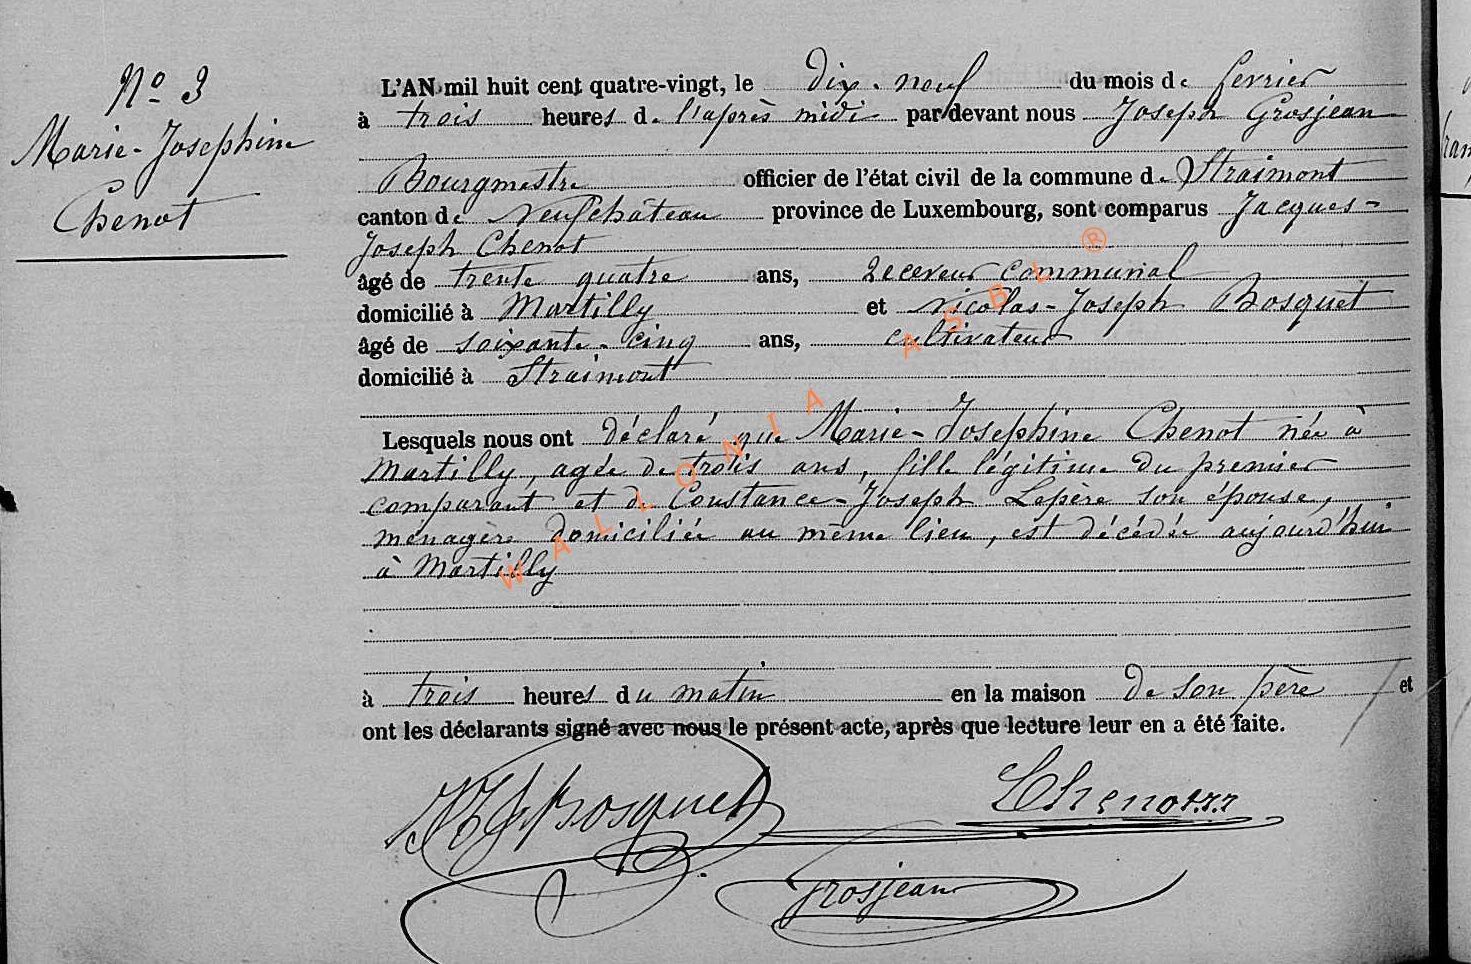 N° 3
Marie-Joséphine
Chenot
L'AN mil huit cent quatre-vingt, le dix-neuf du mois de fevrier
à trois heures de l'après midi par devant nous Joseph Grosjean
Bourgmestre officier de l'état civil de la commune de Straimont
canton de Neufchâteau province de Luxembourg, sont comparus Jacques-
Joseph Chenot
âgé de trente quatre ans, receveur communal
domicilié à Martilly et Nicolas-Joseph Bosquet
âgé de soixante-cinq ans, cultivateur
domicilié à Straimont
Lesquels nous ont déclaré que Marie-Joséphine Chenot née à
Martilly, agée de trois ans, fille légitime du premier
comparant et de Constance-Joseph Lepère son épouse,
ménagère domiciliée au même lieu, est décédée aujourd'hui
à Martilly
à trois heures du matin en la maison de son père et
ont les déclarants signé avec nous le présent acte, après que lecture leur en a été faite.
Bosquet Chenot
Grosjean
WALLONIA ASBL ®